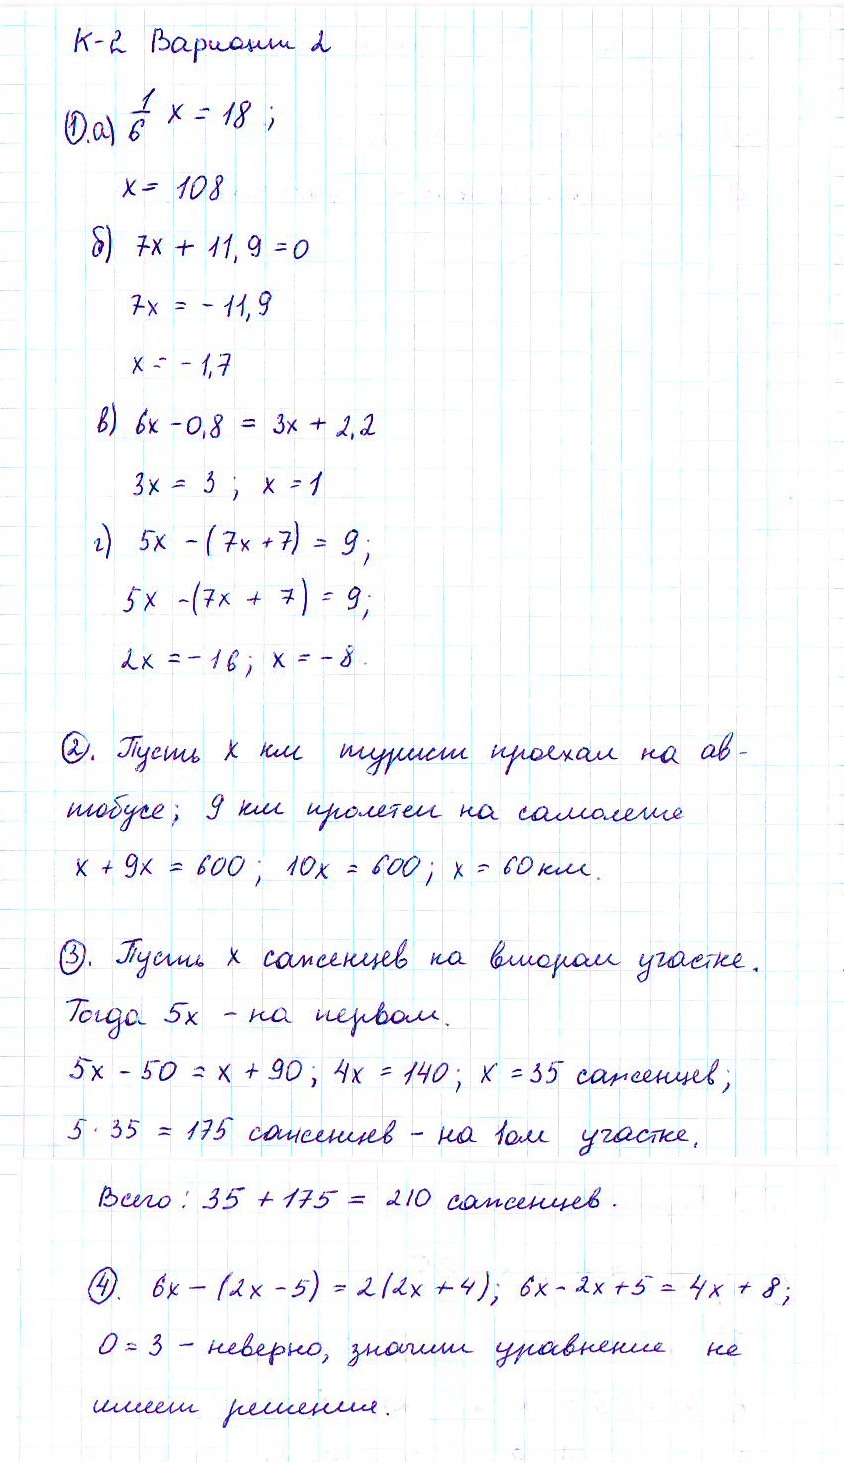 К-2 Вариант 2
①.а) 1/6 x = 18 ;
x = 108
б) 7x + 11,9 = 0
7x = - 11,9
x = - 1,7
в) 6x - 0,8 = 3x + 2,2
3x = 3 ; x = 1
г) 5x - (7x + 7) = 9;
5x - (7x + 7) = 9;
2x = - 16; x = - 8.
②. Пусть x км турист проехал на ав-
тобусе; 9 км пролетел на самолете
x + 9x = 600; 10x = 600; x = 60 км.
③. Пусть x саженцев на втором участке.
Тогда 5x - на первом.
5x - 50 = x + 90; 4x = 140; x = 35 саженцев;
5 · 35 = 175 саженцев - на 1ом участке.
Всего: 35 + 175 = 210 саженцев.
④. 6x - (2x - 5) = 2(2x + 4); 6x - 2x + 5 = 4x + 8;
0 = 3 - неверно, значит уравнение не
имеет решения.